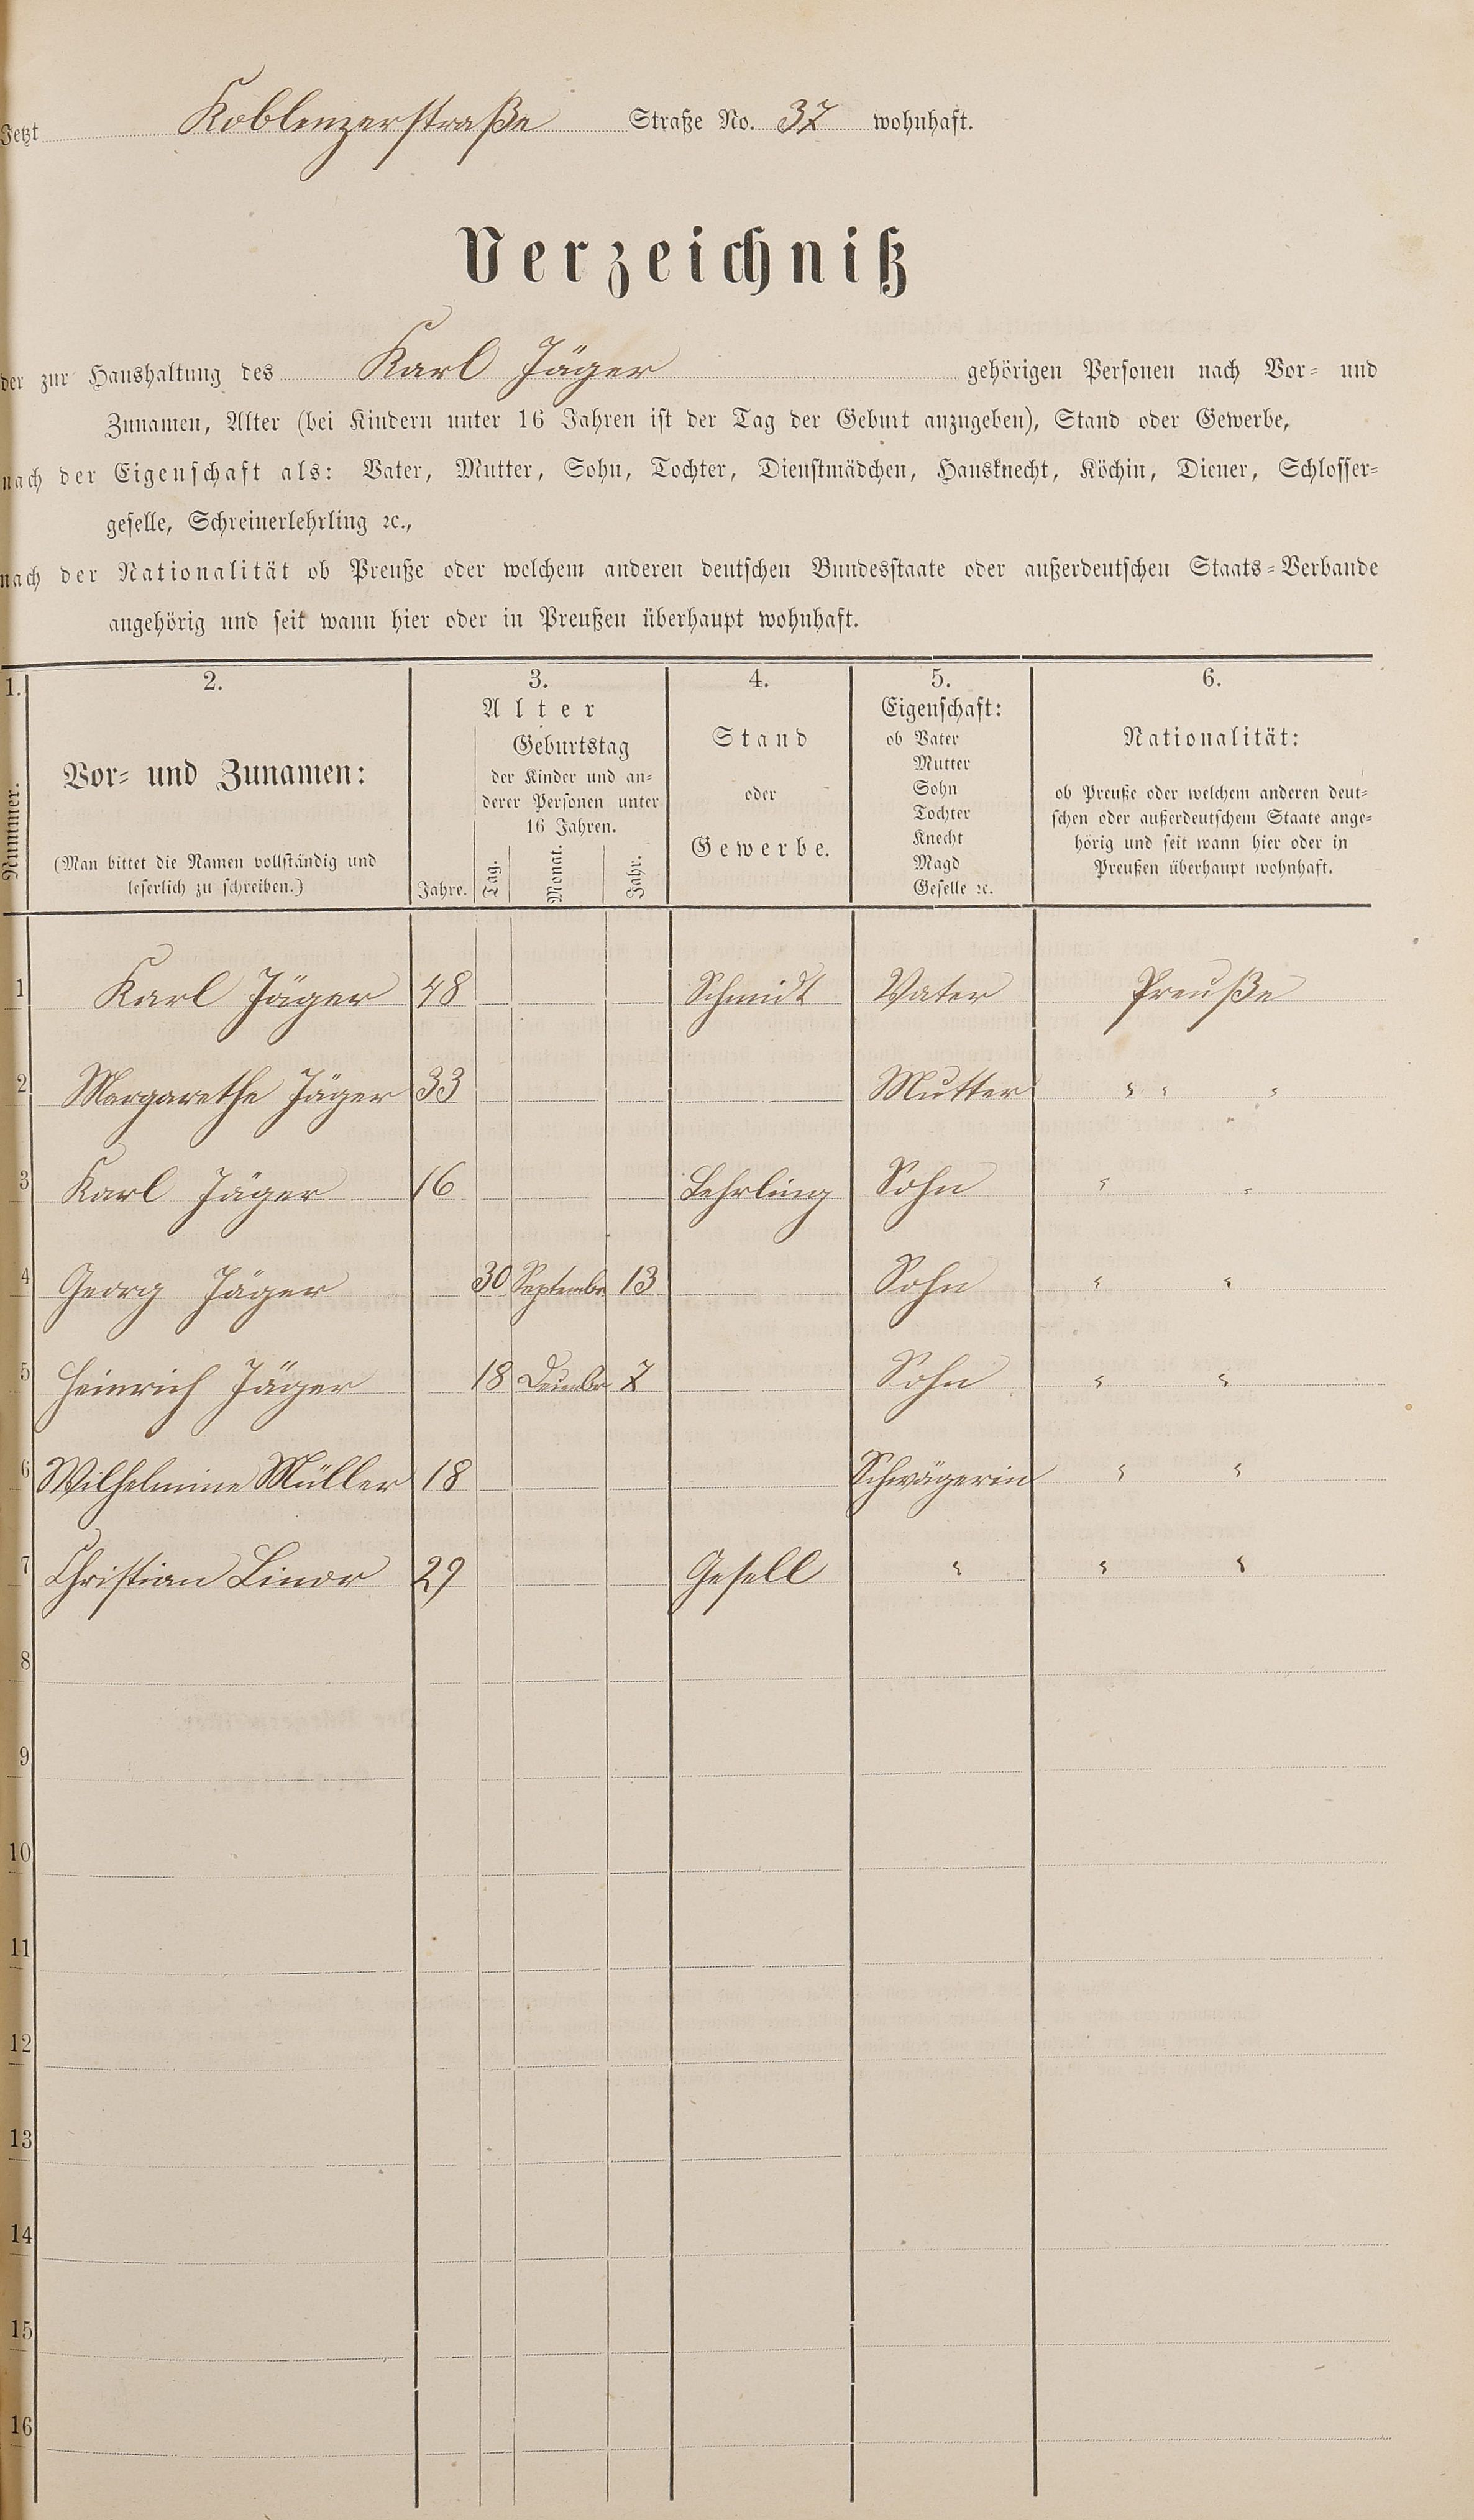 Jetzt Koblenzerstraße Straße No. 37 wohnhaft.
Verzeichniß
der zur Haushaltung des Karl Jäger gehörigen Personen nach Vor- und
Zunamen, Alter (bei Kindern unter 16 Jahren ist der Tag der Geburt anzugeben), Stand oder Gewerbe,
nach der Eigenschaft als: Vater, Mutter, Sohn, Tochter, Dienstmädchen, Hausknecht, Köchin, Diener, Schlosser-
geselle, Schreinerlehrling ꝛc.,
nach der Nationalität ob Preuße oder welchem anderen deutschen Bundesstaate oder außerdeutschen Staats-Verbande
angehörig und seit wann hier oder in Preußen überhaupt wohnhaft.
1.
Nummer.
2.
Vor- und Zunamen:
(Man bittet die Namen vollständig und
leserlich zu schreiben.)
3.
Alter
Jahre.
Geburtstag
der Kinder und an-
derer Personen unter
16 Jahren.
Tag. Monat. Jahr.
4.
Stand
oder
Gewerbe.
5.
Eigenschaft:
ob Vater
Mutter
Sohn
Tochter
Knecht
Magd
Geselle ꝛc.
6.
Nationalität:
ob Preuße oder welchem anderen deut-
schen oder außerdeutschem Staate ange-
hörig und seit wann hier oder in
Preußen überhaupt wohnhaft.
1 Karl Jäger 48 Schmidt Vater Preuße
2 Margarethe Jäger 33 Mutter " " "
3 Karl Jäger 16 Lehrling Sohn " "
4 Georg Jäger 30 Septembr 13 Sohn " "
5 Heinrich Jäger 18 Decembr 7 Sohn " "
6 Wilhelmine Müller 18 Schwägerin " "
7 Christian 29 Gesell " " "
8
9
10
11
12
13
14
15
16